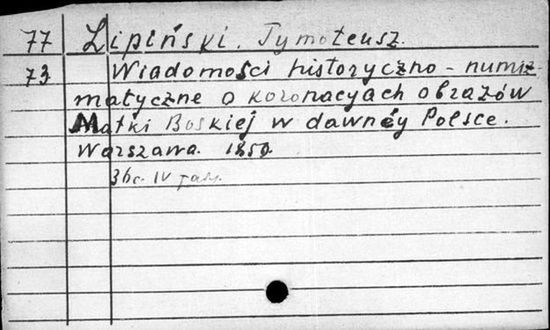 77 Lipiński. Tymoteusz.
73 Wiadomości historyczno-numiz-
matyczne o koronacyach obrazów
Matki Boskiej w dawnéy Polsce.
Warszawa. 1850.
IV